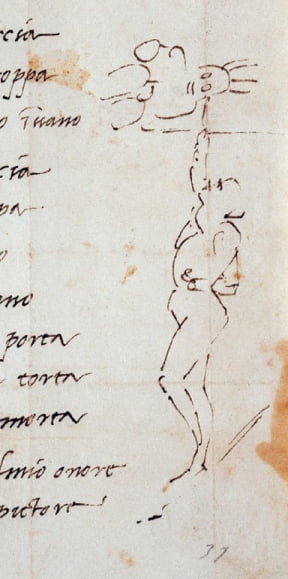 ccia
oppa
o i strano
ccia
pa
o
ano
porta
torta
morta
l mio onore
pictore
37